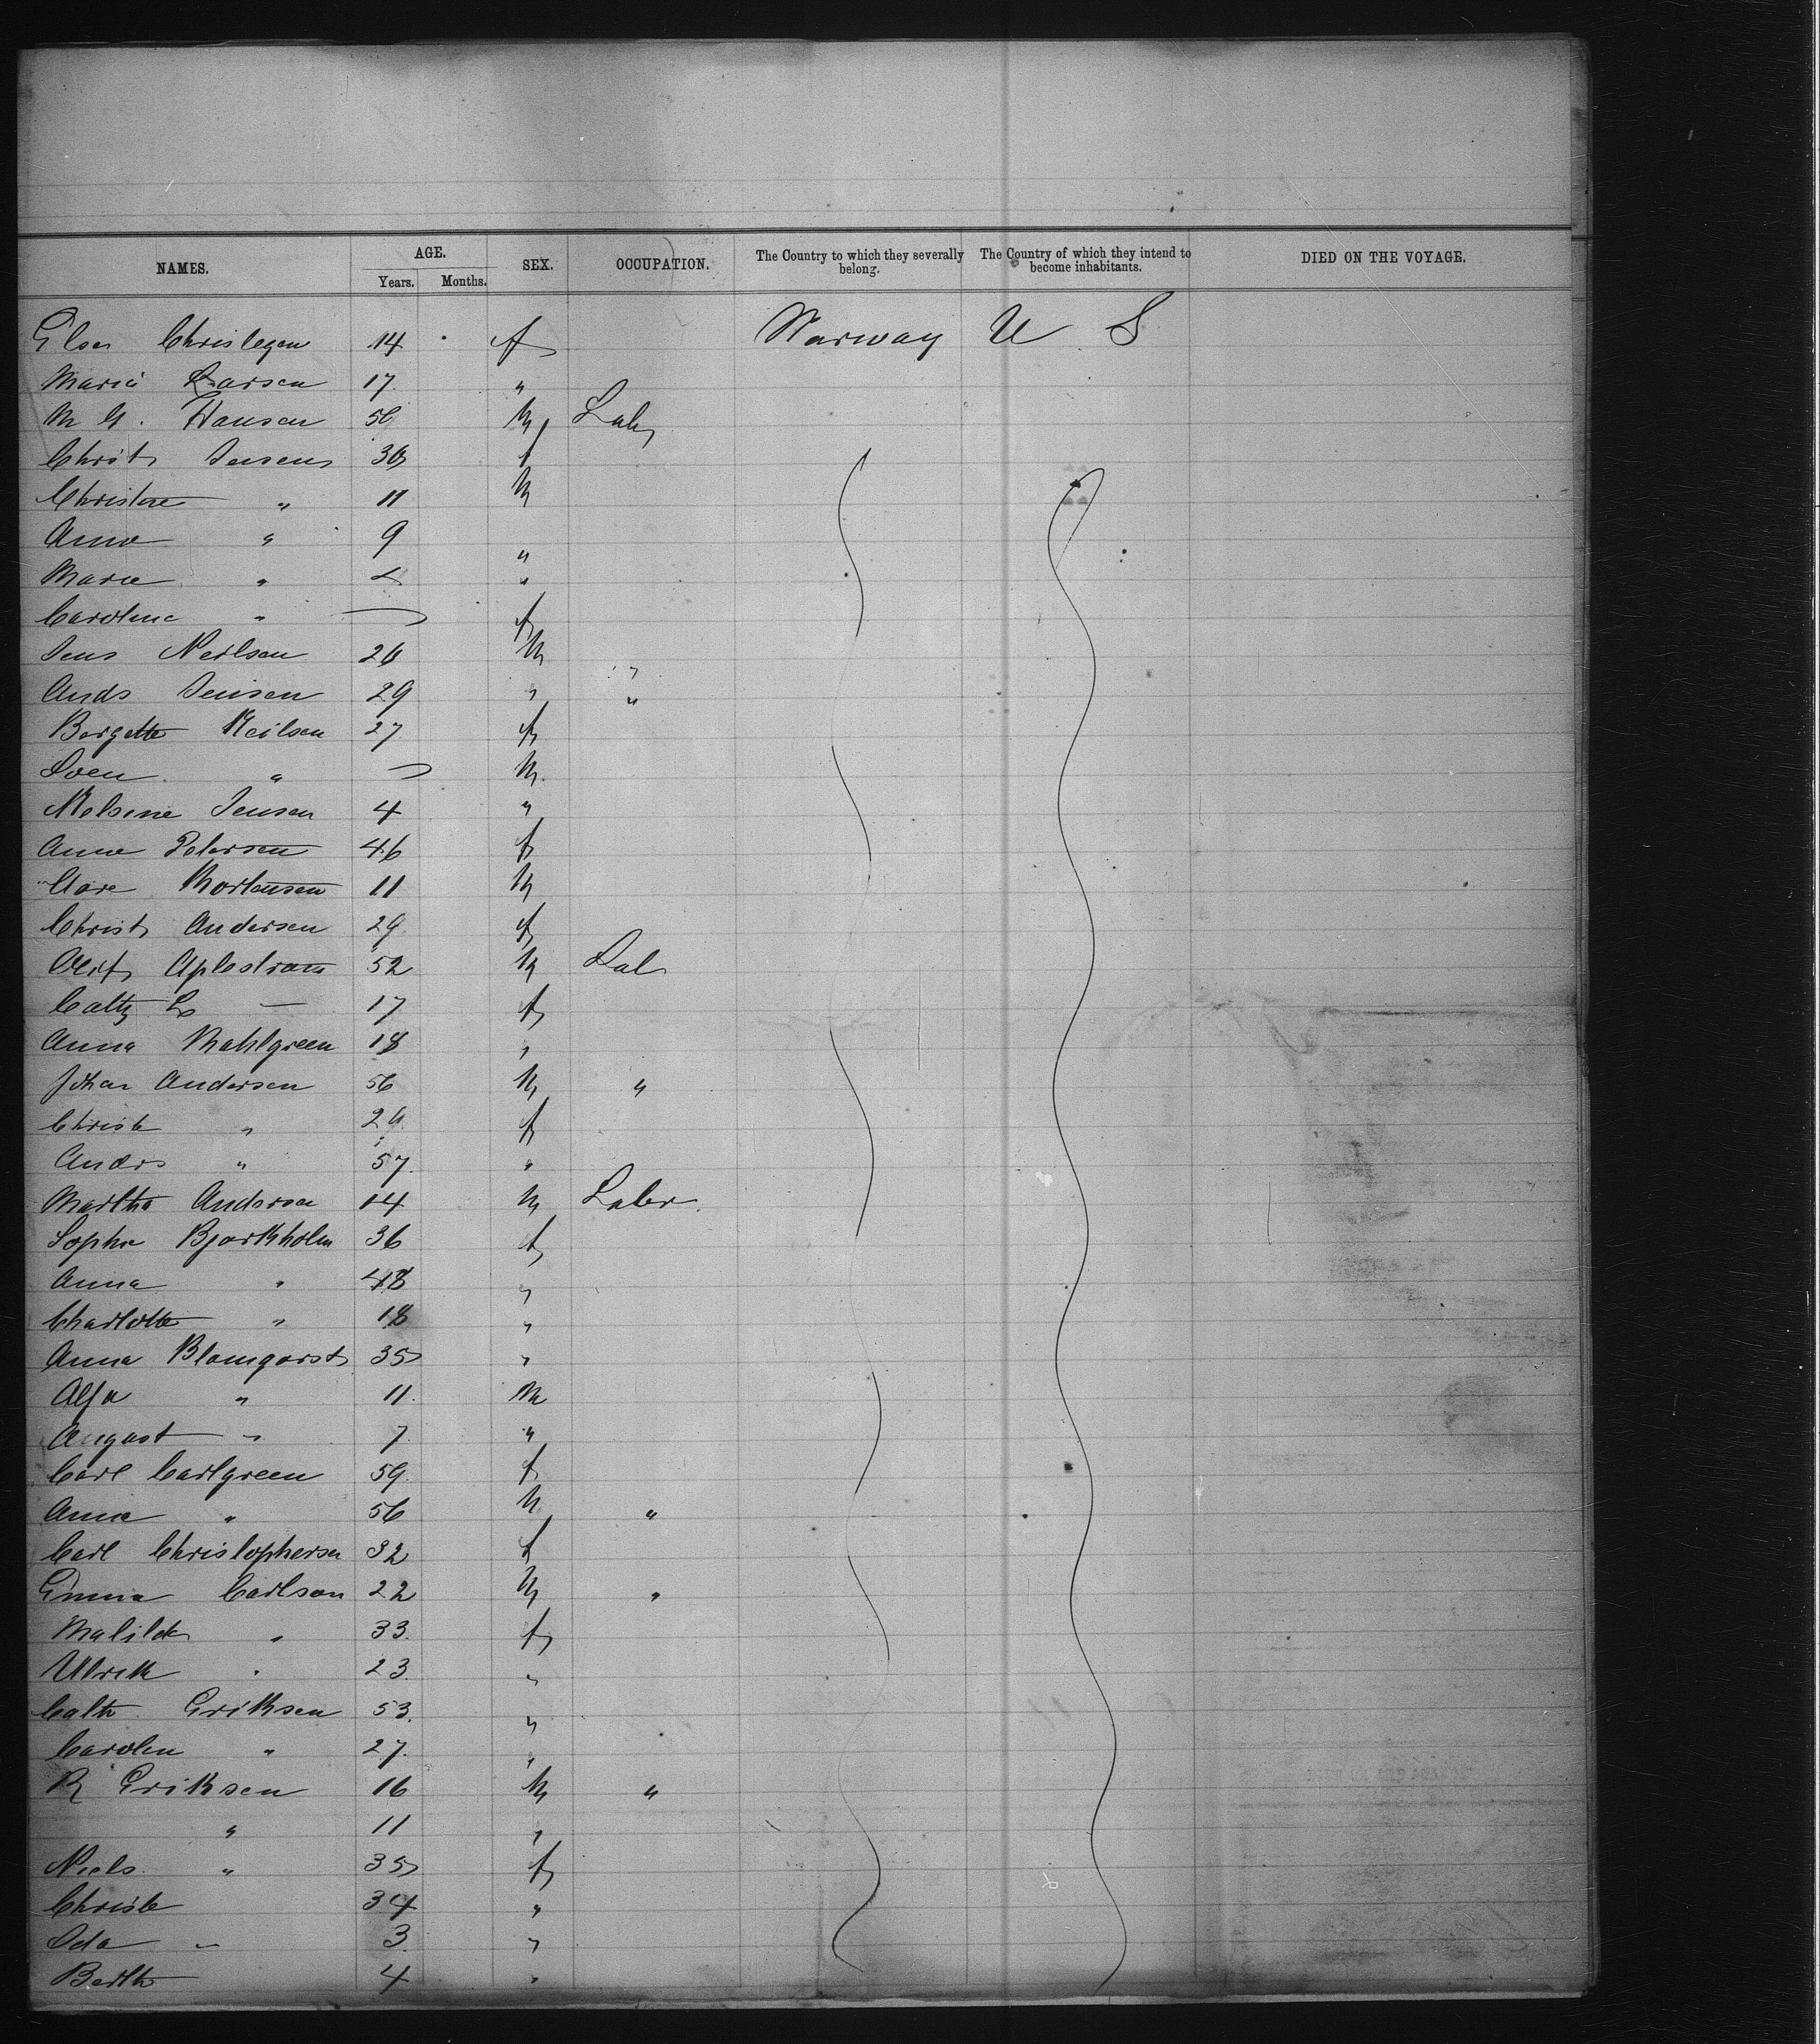 NAMES. AGE. SEX. OCCUPATION. The Country to which they severally belong. The Country of which they intend to become inhabitants. DIED ON THE VOYAGE.
Years. Months.
Elsa 14 f Norway U S
Maria Larsen 17 "
M Hansen 56 M Lab
Christ Jensen 30 f
Christine " 11 M
Anna " 9 "
Marie " "
Caroline " f
Jens Neilsen 26 M "
Ands Jensen 29 " "
Bergette Neilsen 27 f
Soen " M.
Nielsine Jensen 4 "
Anna Petersen 46 f
Mortensen 11 M
Christ Andersen 29 f
Aplestrom 52 M Lab
Cath L — 17 f
Anna Mahlgreen 18 "
Johan Andersen 56 M "
Christ " f
Anders " 57 "
Martha Andersen 14 M Laber
Sophia Bjorkholm 36 f
Anna " 48 "
Charlotte " 18 "
Anna Blomqvist 35 "
Alfa " 11 M
August " 7 "
Carl Carlgreen 59 f
Anna " 56 M "
Carl Christophersen 32 f
Emma Carlson 22 M "
Matilda " 33 f
Ulrik " 23 "
Cath Eriksen 53 "
Carolin " 27 "
R Eriksen 16 M "
" 11 "
Niels " 35 f
Christe 34 "
Ida " 3 "
Berth 4 "